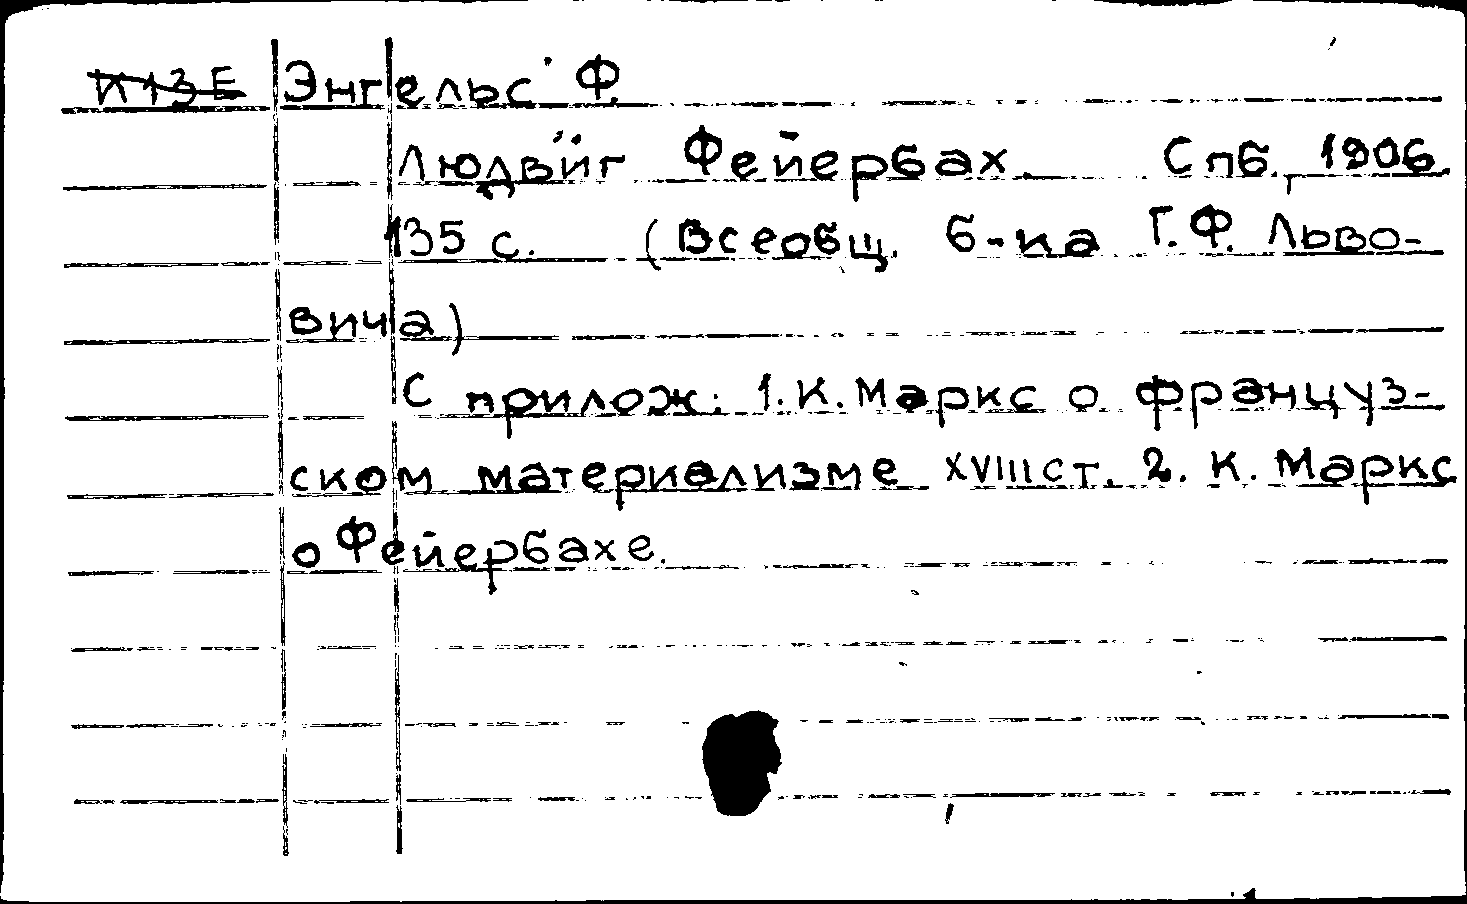 И13Е Энгельс Ф.
Людвиг Фейербах. Спб., 1906.
135 с. (Всеобщ. б-ка Г.Ф. Льво-
вича)
С прилож: 1. К. Маркс о француз-
ском материализме XVIII ст. 2. К. Маркс
о Фейербахе.